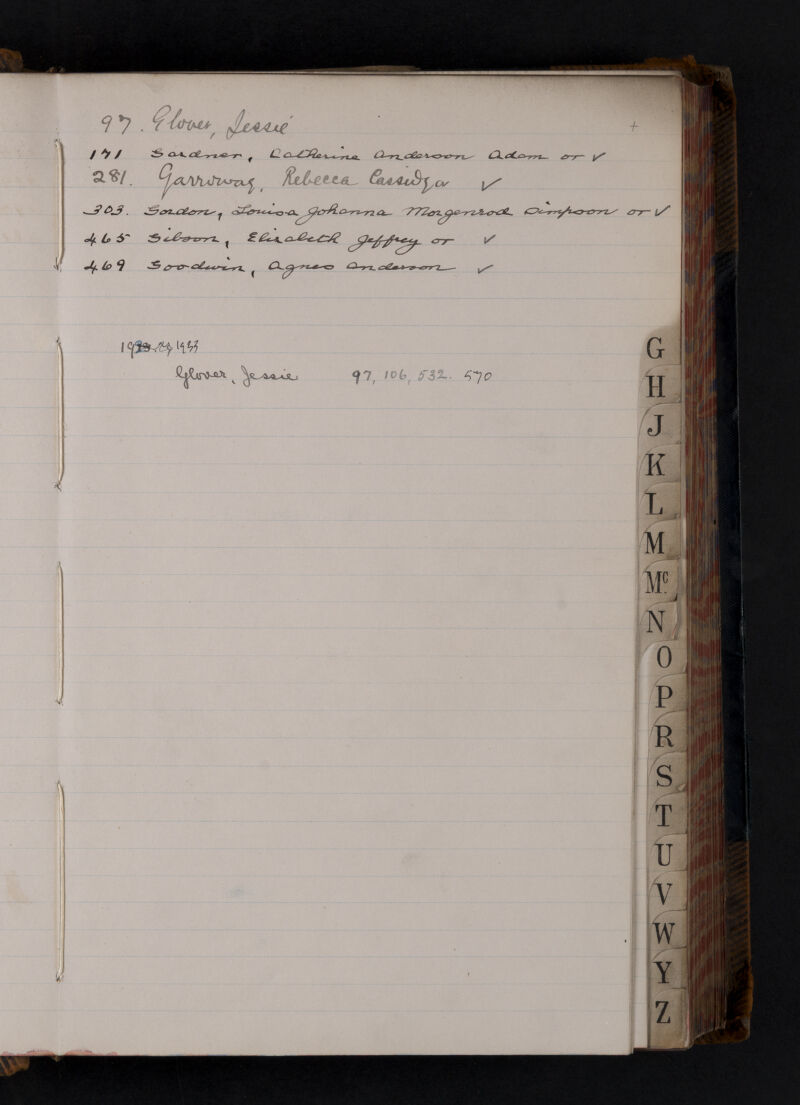 97. Glover, Jessie +
171 Gardner, Catherine Anderson Adam or ✓
281. Garroway, Rebecca Cassidy or ✓
303. Gordon, Louisa Johanna Morgenrod Simpson or ✓
465 Gibson, Elizabeth Jeffrey or ✓
469 Goodwin, Agnes Anderson ✓
1933
Glover, Jessie 97, 106, 532. 570
G
H
J
K
L
M
Mc.
N
O
P
R
S
T
U
V
W
Y
Z